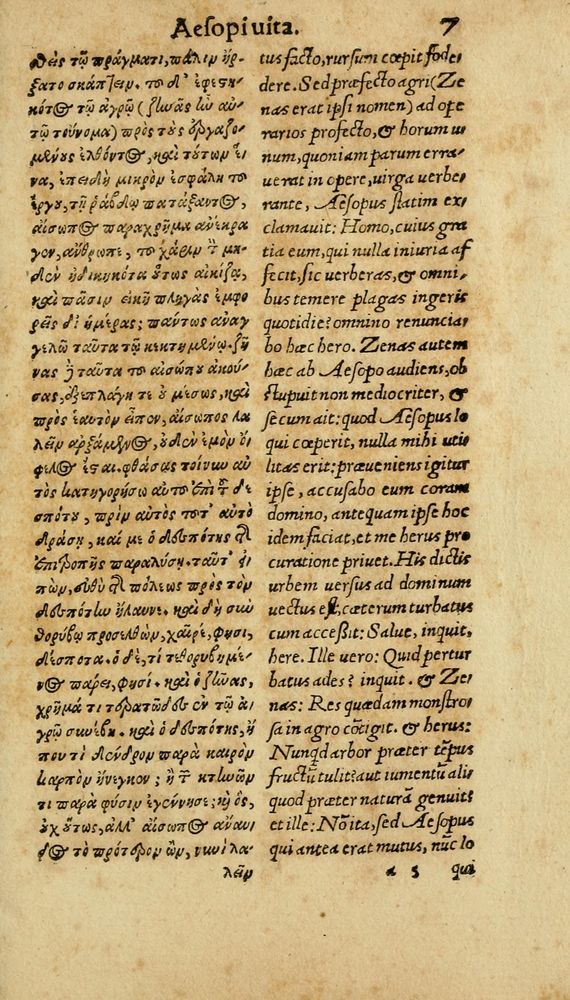 Aesopi vita. 7
θεὶς τῷ πράγματι, πάλιν ἤρ-
ξατο σκάπτειν. τοῦ δ' ἐφεστη-
κότος τῷ ἀγρῷ (ζωᾶς ἦν αὐ-
τῷ τοὔνομα) πρὸς τοὺς ἐργαζο-
μένους ἐλθόντος, καὶ τούτων ἕ-
να, ἐπειδὴ μικρὸν ἐσφάλη τοῦ
ἔργου, τῇ ῥάβδῳ πατάξαντος,
αἴσωπος παραχρῆμα ἀνέκρα-
γεν, ἄνθρωπε, τοῦ χάριν τὸν μη-
δὲν ἠδικηκότα οὕτως αἰκίζῃ,
καὶ πᾶσιν εἰκῆ πληγὰς ἐμφο-
ρεῖς δι' ἡμέρας; πάντως ἀναγ
γελῶ ταῦτα τῷ κεκτημένῳ. ζη-
νᾶς δὲ ταῦτα τοῦ αἰσώπου ἀκού-
σας, ἐξεπλάγη τε οὐ μέσως, καὶ
πρὸς ἑαυτὸν εἶπεν, αἴσωπος λα
λεῖν ἀρξάμενος, οὐδὲν ἐμοὶ ὄ-
φελος ἔσται. φθάσας τοίνυν αὐ
τὸς κατηγορήσω αὐτοῦ ἐπὶ τοῦ δε-
σπότου, πρὶν αὐτὸς τοῦτ' αὐτὸ
δράσῃ, καί με ὁ δεσπότης τῆς
ἐπιτροπῆς παραλύσῃ. ταῦτ' εἰ-
πὼν, εὐθὺ τῆς πόλεως πρὸς τὸν
δεσπότην ἤλαυνε. καὶ δὴ σὺν
θορύβῳ προσελθὼν, χαῖρε, φησι,
δέσποτα. ὁ δὲ, τί τεθορυβημέ-
νος πάρει, φησί. καὶ ὁ ζωᾶς,
χρῆμά τι τερατῶδες ἐν τῷ ἀ-
γρῷ συνέβη. καὶ ὁ δεσπότης, ἤ
που τὶ δένδρον παρὰ καιρὸν
καρπὸν ἤνεγκεν; ἢ τῶν κτηνῶν
τι παρὰ φύσιν ἐγέννησε; καὶ ὃς,
οὐχ οὕτως, ἀλλ' αἴσωπος ἄναυ-
δος τὸ πρότερον ὢν, νυνὶ λα-
λεῖν
tus facto, rursum cœpit fode
dere. Sed præfecto agri (Ze
nas erat ipsi nomen) ad ope
rarios profecto, & horum u
num, quoniam parum erra-
uerat in opere, uirga uerbe
rante, Aesopus statim ex
clamauit: Homo, cuius gra
tia eum, qui nulla iniuria af
fecit, sic uerberas, & omni-
bus temere plagas ingeris
quotidie? omnino renuncia-
bo hæc hero. Zenas autem
hæc ab Aesopo audiens, ob
stupuit non mediocriter, &
secum ait: quod Aesopus lo
qui cœperit, nulla mihi uti-
litas erit: præueniens igitur
ipse, accusabo eum coram
domino, antequam ipse hoc
idem faciat, et me herus pro
curatione priuet. His dictis
urbem uersus ad dominum
uectus est, cæterum turbatus
cum accessit: Salue, inquit,
here. Ille uero: Quid pertur
batus ades? inquit. & Ze-
nas: Res quædam monstro-
sa in agro cōtigit. & herus:
Nunqd arbor præter tēpus
fructū tulit? aut iumentū ali-
quod præter naturā genuit?
et ille: Nō ita, sed Aesopus
qui antea erat mutus, nūc lo
a 5 qui